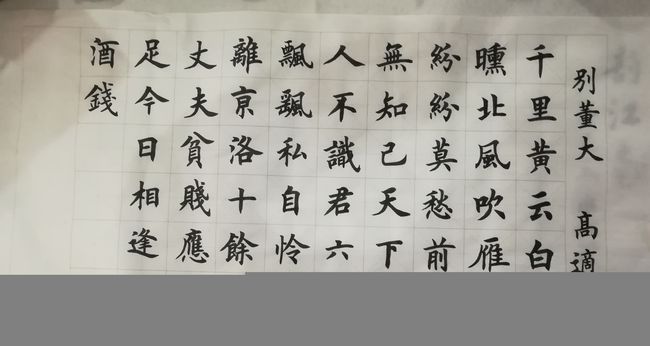 別董大 高適
千里黄云白
曛北風吹雁
紛紛莫愁前
無知己天下
人不識君六
飄飄私自怜
離京洛十餘
丈夫貧賤應
足今日相逢
酒錢